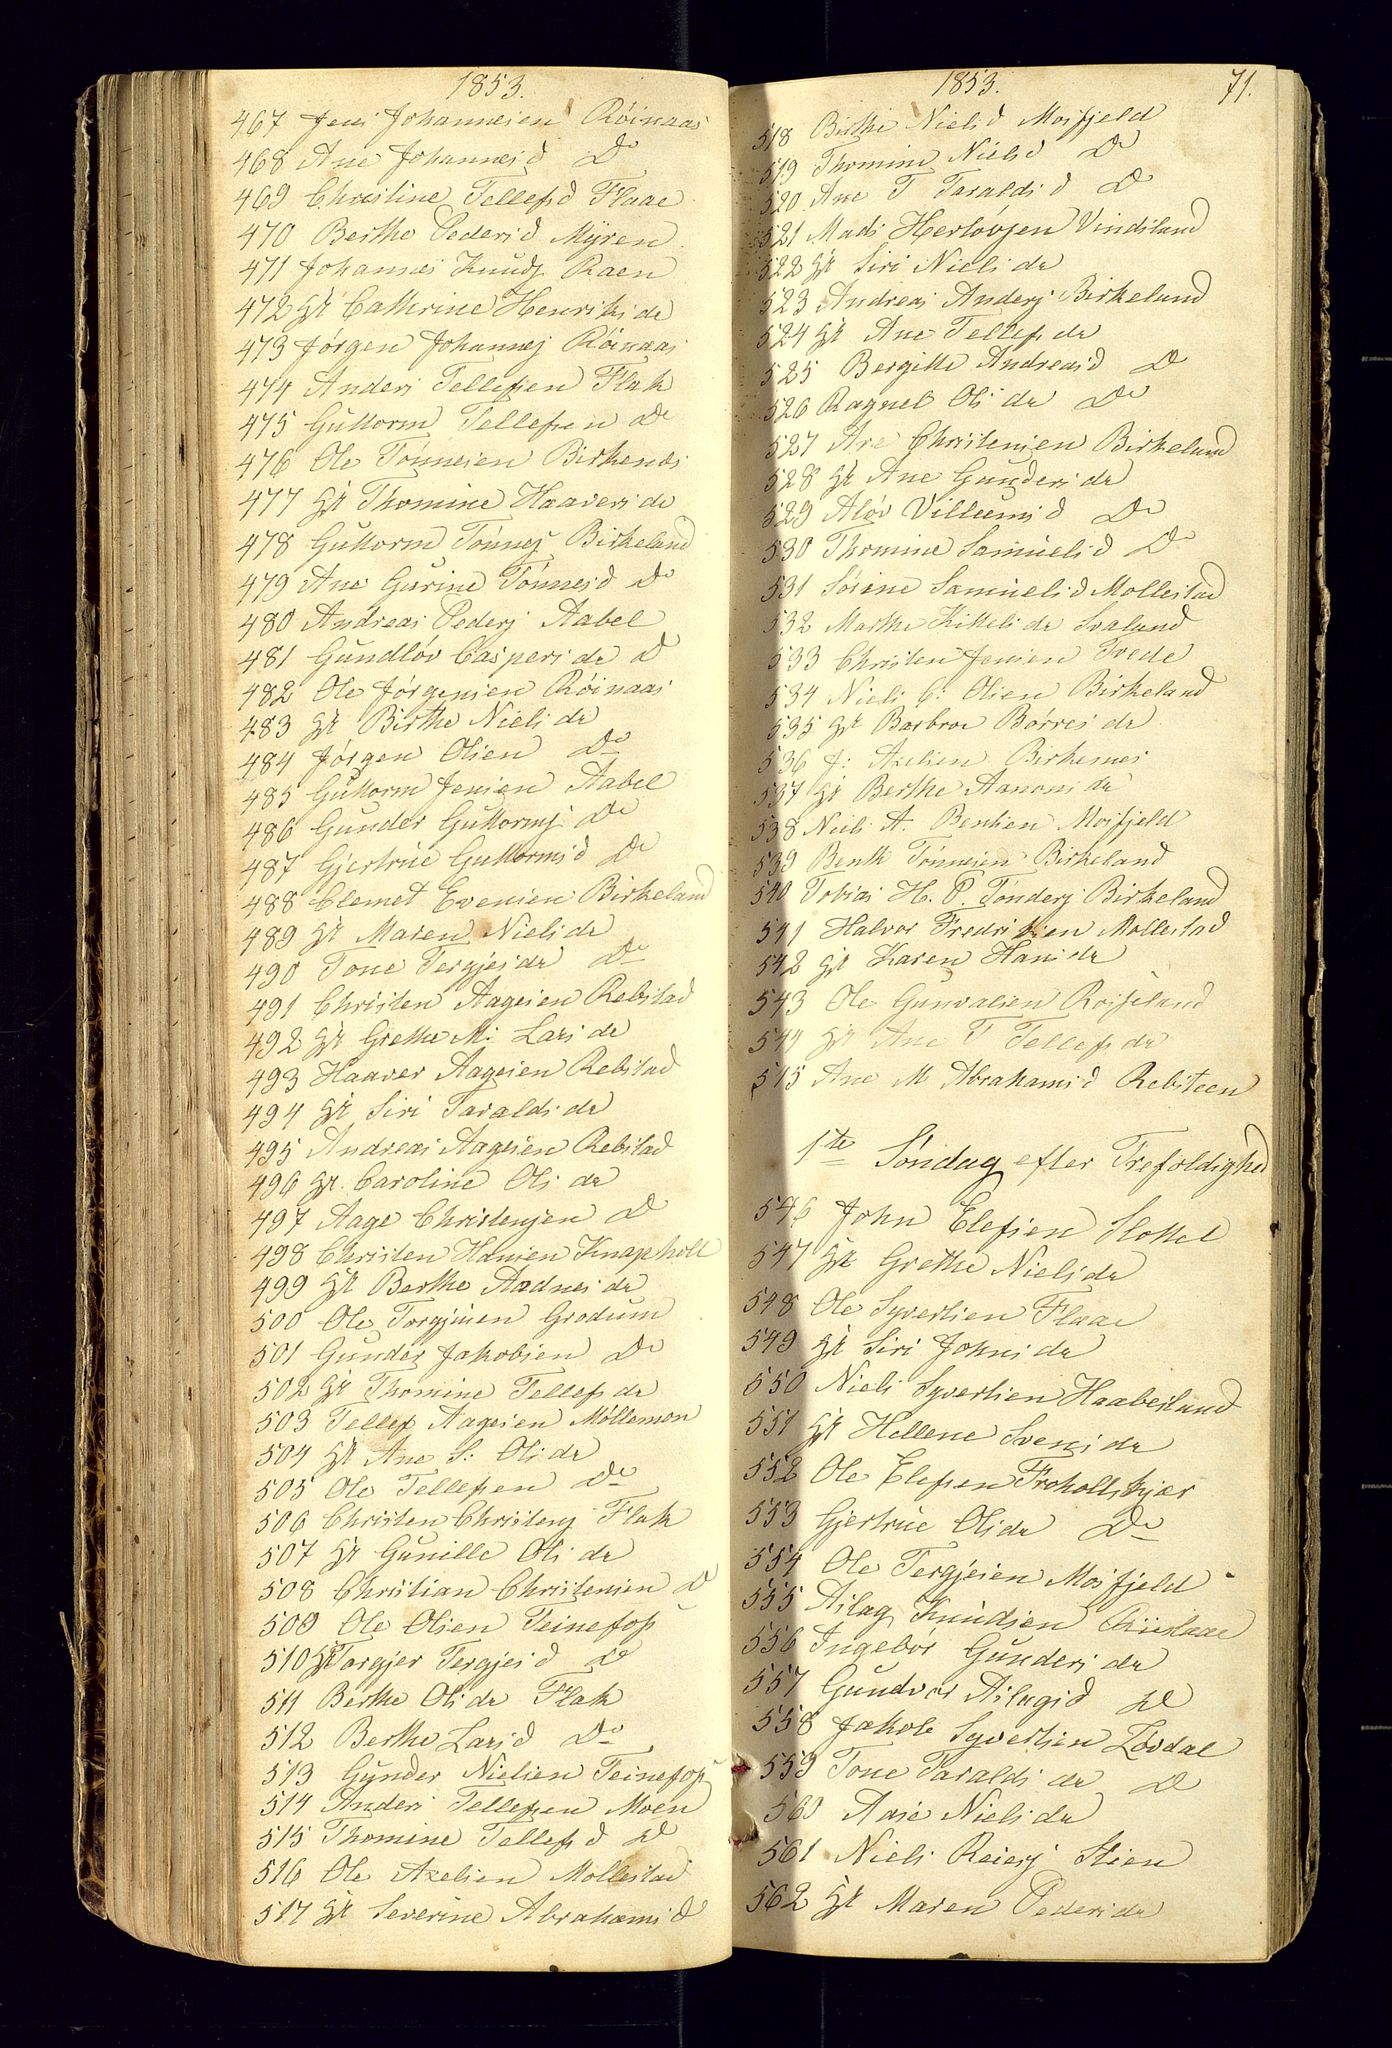 1853.
467 Jens Johannesen Röinaas
468 Ane Johannesd Do
469 Christine Tellefsd Flaae
470 Berthe Pedersd Myren
471 Johannes Knuds Raen
472 H Cathrine Henriksdr
473 Jørgen Johannes Röinaas
474 Anders Tellefsen Flak
475 Guttorm Tellefsen Do
476 Ole Tønnesen Birkenes
477 H Thomine Haaversdr
478 Guttorm Tønnes Birkeland
479 Ane Gurine Tønnesd Do
480 Andreas Peders Aabel
481 Gundløv Caspersdr D
482 Ole Jørgensen Röinaas
483 H Birthe Nielsdr
484 Jørgen Olsen Do
485 Guttorm Jensen Aabel
486 Gunder Guttorms Do
487 Gjertrue Guttormsd Do
488 Clemet Evensen Birkeland
489 H Maren Nielsdr
490 Tone Tergjesdr Do
491 Christen Aagesen Rebstad
492 H Grethe M: Larsdr
493 Haaver Aagesen Rebstad
494 H Siri Taraldsdr
495 Andreas Aagesen Rebstad
496 H. Caroline Olsdr
497 Aage Christensen D
498 Christen Hansen Knapholt
499 H Berthe Aadnesdr
500 Ole Torgjusen Grodum
501 Gunder Jakobsen Do
502 H Thomine Tellefsdr
503 Tellef Aagesen Møllemon
504 H Ane S: Olsdr
505 Ole Tellefsen Do
506 Christen Christens Flak
507 H Gunille Olsdr
508 Christian Christensen D
509 Ole Olsen Teinefos
510 H Targjer Tergjesd D
511 Berthe Olsdr Flak
512 Berthe Larsd Do
513 Gunder Nielsen Teinefos
514 Anders Tellefsen Moen
515 Thomine Tellefsd D
516 Ole Axelsen Mollestad
517 H Severine Abrahamsd
1853. 71.
518 Birthe Nielsd Mosfjeld
519 Thomine Nielsd Do
520 Ane T Taraldsd D
521 Mads Herløvsen Vindsland
522 H Siri Nielsdr
523 Andreas Anders Birkeland
524 H Ane Tellefsdr
525 Bergitte Andreasd D
526 Ragnel Olsdr Do
527 Are Christensen Birkeland
528 H Ane Gundersdr
529 Aløv Villumsd Do
530 Thomine Samuelsd Do
531 Sørine Samuelsd Mollestad
532 Marthe Kittelsdr Svaland
533 Christen Jensen Tvede
534 Niels C: Olsen Birkeland
535 H Barbroe Børresdr
536 J: Axelsen Birkenes
537 H Berthe Aanonsdr
538 Niels A. Bentsen Mosfjeld
539 Bent Tønnesen Birkeland
540 Tobias H. P. Tønders Birkeland
541 Halvor Fredriksen Mollestad
542 H Karen Hansdr
543 Ole Gunvalsen Rosseland
544 H Ane T Tellefsdr
545 Ane M Abrahamsd Rebsteen
1te Søndag efter Trefoldighed
546 John Elefsen Stottel
547 H Grethe Nielsdr
548 Ole Syvertsen Flaae
549 H Siri Johnsdr
550 Niels Syvertsen Haabesland
551 H Hellene Svensdr
552 Ole Elefsen Froholtskjær
553 Gjertrue Olsdr Do
554 Ole Tergjesen Mosfjeld
555 Aslag Knudsen Riislaae
556 Ingebor Gundersdr
557 Gundvor Aslagsd D
558 Jakob Syvertsen Løvdal
559 Tone Taraldsdr D
560 Aase Nielsdr
561 Niels Reiers Stien
562 H Maren Pedersdr